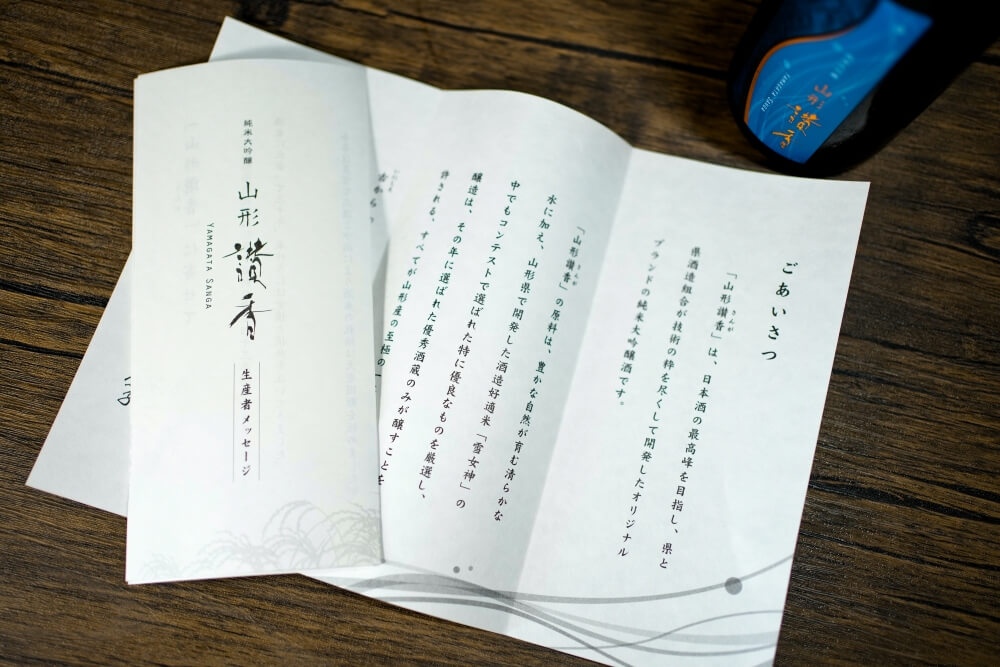 純米大吟醸
山形讃香
YAMAGATA SANGA
生産者メッセージ
ごあいさつ
さんが
「山形讃香」は、日本酒の最高峰を目指し、県と
県酒造組合が技術の粋を尽くして開発したオリジナル
ブランドの純米大吟醸酒です。
さんが
「山形讃香」の原料は、豊かな自然が育む清らかな
水に加え、山形県で開発した酒造好適米「雪女神」の
中でもコンテストで選ばれた特に優良なものを厳選し、
醸造は、その年に選ばれた優秀酒蔵のみが醸すことを
許される、すべてが山形産の至極の
山形讃香